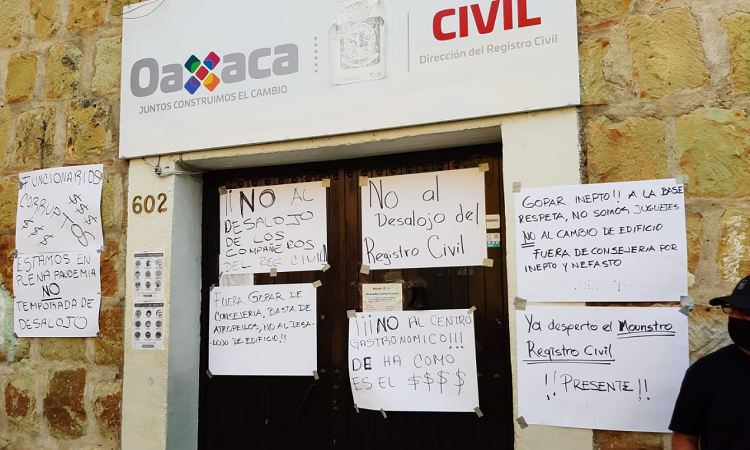 Oaxaca
JUNTOS CONSTRUIMOS EL CAMBIO
CIVIL
Dirección del Registro Civil
602
FUNCIONARIOS
CORRUPTOS
$ $ $
$ $ $
ESTAMOS EN
PLENA PANDEMIA
NO
TEMPORADA DE
DESALOJO
¡¡NO AL
DESALOJO
DE LOS
COMPAÑEROS
DEL REG CIVIL
FUERA GOPAR DE
CONSEJERIA, BASTA DE
ATROPELLOS, NO AL DESA-
LOJO DE EDIFICIO!!
NO al
Desalojo del
Registro Civil
¡¡¡NO AL CENTRO
GASTRONOMICO!!!
DE HA COMO
ES EL $$$$
GOPAR INEPTO!! A LA BASE
RESPETA, NO SOMOS JUGUETES
NO AL CAMBIO DE EDIFICIO
FUERA DE CONSEJERIA POR
INEPTO Y NEFASTO
Ya desperto el Mounstro
Registro Civil
!!PRESENTE!!